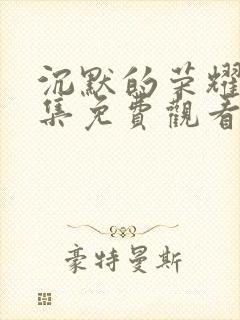 沉默的荣耀
集免費觀看
豪特曼斯